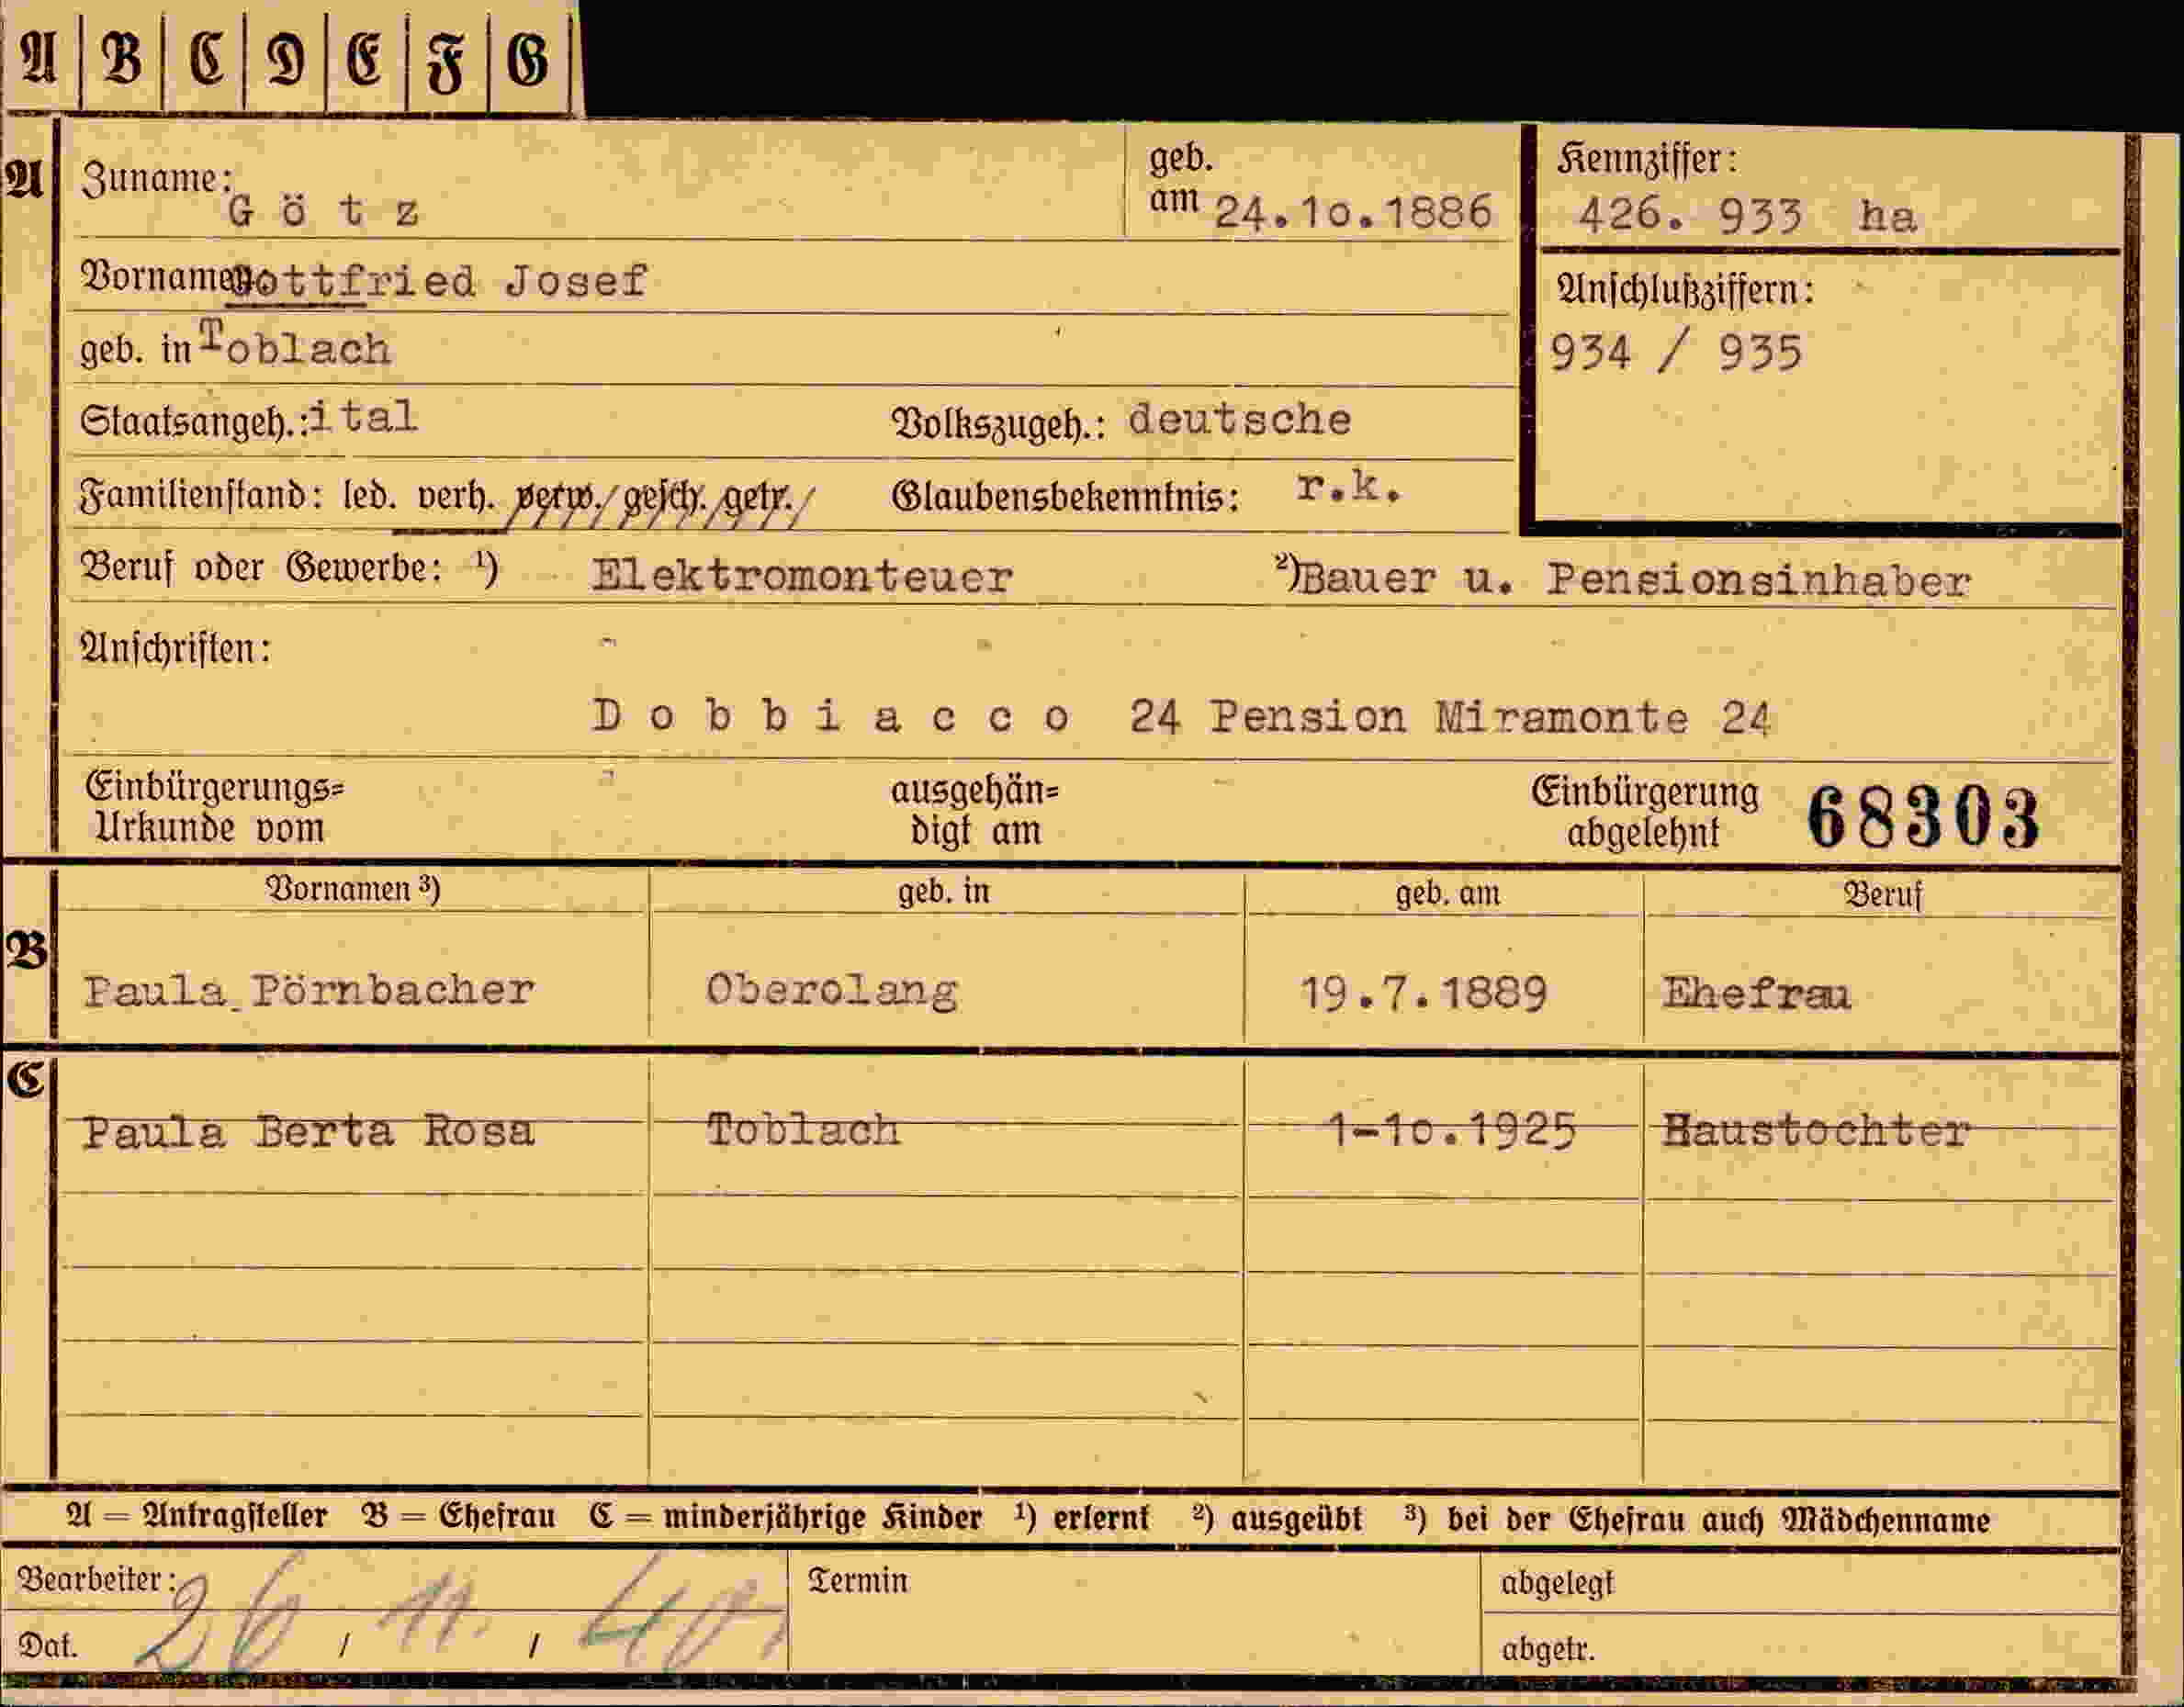 A B C D E F G
A Zuname: Götz geb. am 24.10.1886 Kennziffer: 426. 933 ha
Vorname: Gottfried Josef Anschlußziffern:
geb. in Toblach 934 / 935
Staatsangeh.: ital Volkszugeh.: deutsche
Familienstand: led. verh. verw./gesch./getr./ Glaubensbekenntnis: r.k.
Beruf oder Gewerbe: ¹) Elektromonteuer ²) Bauer u. Pensionsinhaber
Anschriften:
Dobbiacco 24 Pension Miramonte 24
Einbürgerungs= ausgehän= Einbürgerung 68303
Urkunde vom digt am abgelehnt
Vornamen ³) geb. in geb. am Beruf
B Paula Pörnbacher Oberolang 19.7.1889 Ehefrau
C Paula Berta Rosa Toblach 1-10.1925 Haustochter
A = Antragsteller B = Ehefrau C = minderjährige Kinder ¹) erlernt ²) ausgeübt ³) bei der Ehefrau auch Mädchenname
Bearbeiter: Termin abgelegt
Dat. 26 / 11. / 40. abgetr.